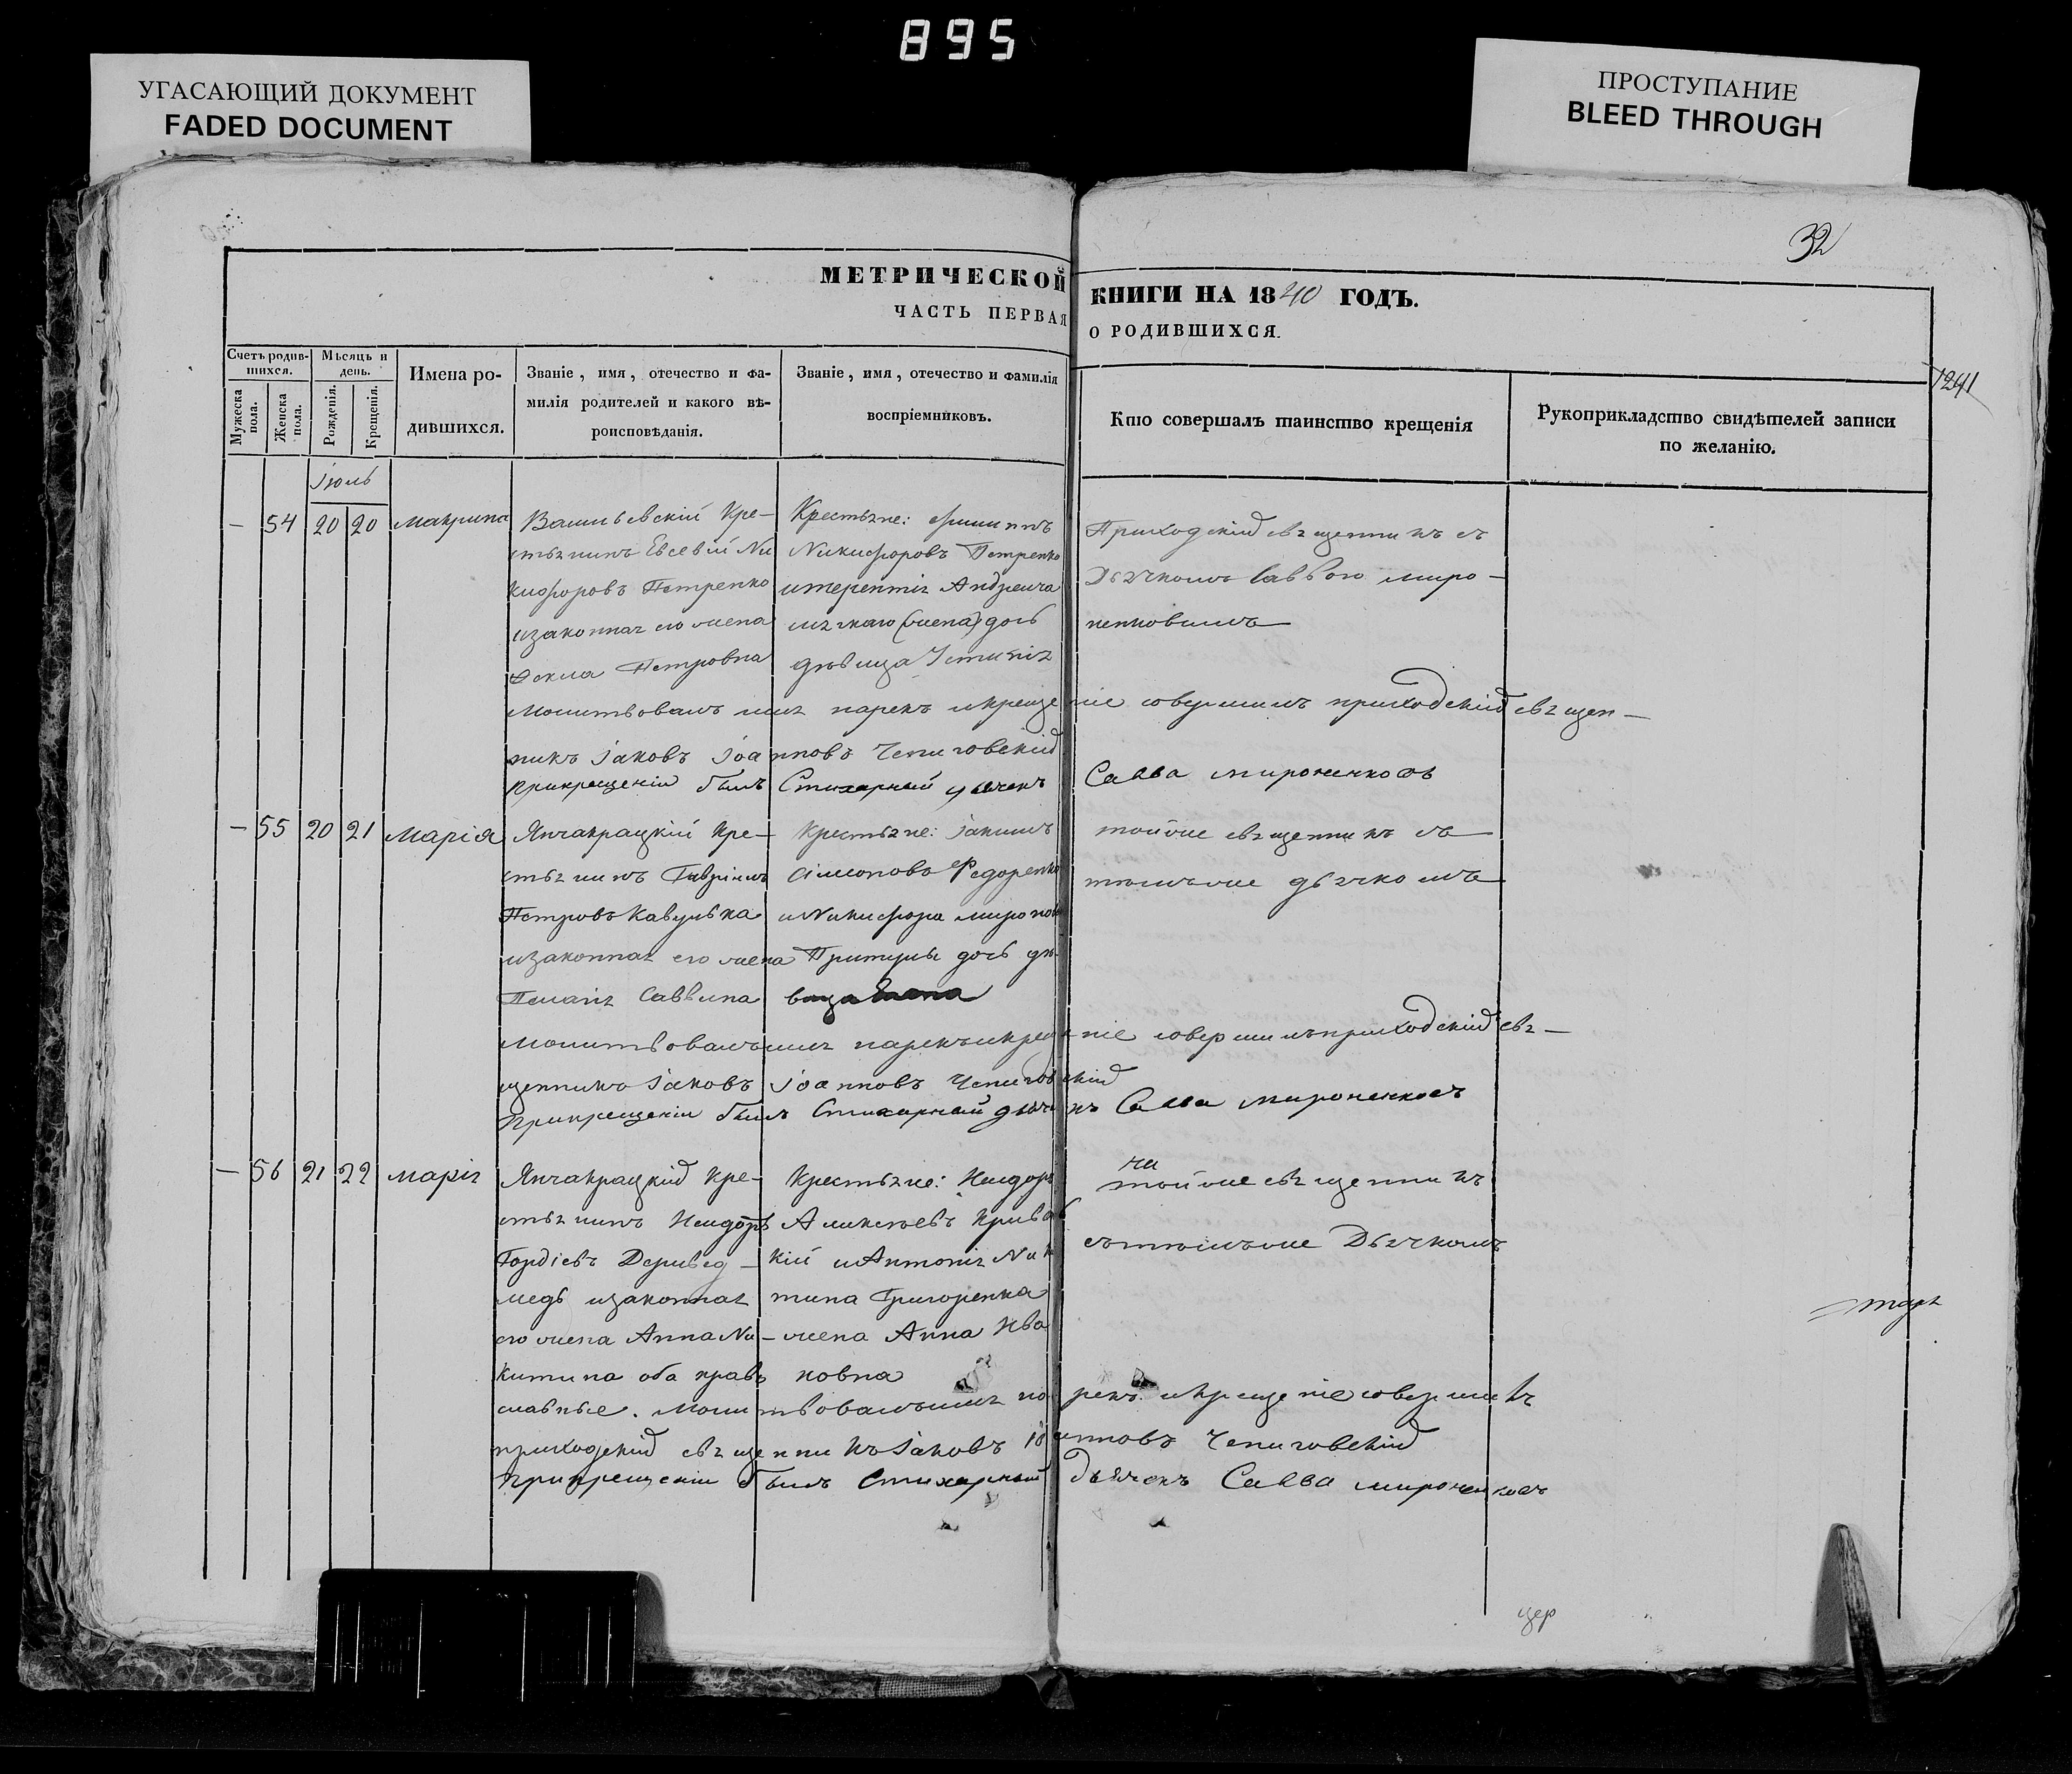 895
УГАСАЮЩИЙ ДОКУМЕНТ
FADED DOCUMENT
ПРОСТУПАНИЕ
BLEED THROUGH
32
МЕТРИЧЕСКОЙ КНИГИ НА 1840 ГОДЪ.
ЧАСТЬ ПЕРВАЯ О РОДИВШИХСЯ.
1241
Счетъ родив-
шихся.
Мужеска
пола.
Женска
пола.
Мѣсяцъ и
день.
Рожденія.
Крещенія.
Имена ро-
дившихся.
Званіе, имя, отечество и фа-
милія родителей и какого вѣ-
роисповѣданія.
Званіе, имя, отечество и фамилія
воспріемниковъ.
Кто совершалъ таинство крещенія
Рукоприкладство свидѣтелей записи
по желанію.
Іюль
— 54 20 20 Макрина
Васильевскій Кре-
стьянинъ Евсевій Ни
кифоровъ Петренко
изаконная его жена
Фекла Петровна
Крестьяне: Филиппъ
Никифоровъ Петренко
итерентія Андреича
дочь
дѣвица Устинія
Приходскій священникъ съ
Дьячкомъ Саввою Миро-
ненковымъ
Молитвовалъ имя нарекъ икрещеніе совершилъ приходскій священ-
никъ Іаковъ Іоанновъ Чепиговскій
Прикрещеніи былъ Стихарный дьячекъ Савва Мироненковъ
— 55 20 21 Марія
Янчакрацкій Кре-
стьянинъ Гавріилъ
Петровъ Кавунька
изаконная его жена
Пелагія Саввина
Крестьяне: Іакимъ
Симоновъ Федоренко
иНикифора миро
Притулы дочь дѣ-
вица
тойже священникъ съ
тѣмъже дьячкомъ
Молитвовалъ имя нарекъ икрещеніе совершилъ приходскій свя-
щенникъ Іаковъ Іоанновъ Чепиговскій
Прикрещеніи былъ Стихарный дьячекъ Савва Мироненковъ
— 56 21 22 Марія
Янчакрацкій Кре-
стьянинъ Исидоръ
Гордіевъ Деривед-
медь изаконная
его жена Анна Ни-
китина оба право
славные. Молитвовалъ имя нарекъ икрещеніе совершилъ
Крестьяне: Исидоръ
Алексѣевъ Кривов
кій иАнтонія Ник
тина Григоренка
жена Анна Ива
новна
тойже священникъ
сътѣмъже Дьячкомъ
приходскій священникъ Іаковъ Іоанновъ Чепиговскій
Прикрещеніи былъ Стихарный дьячекъ Савва Мироненковъ
цер